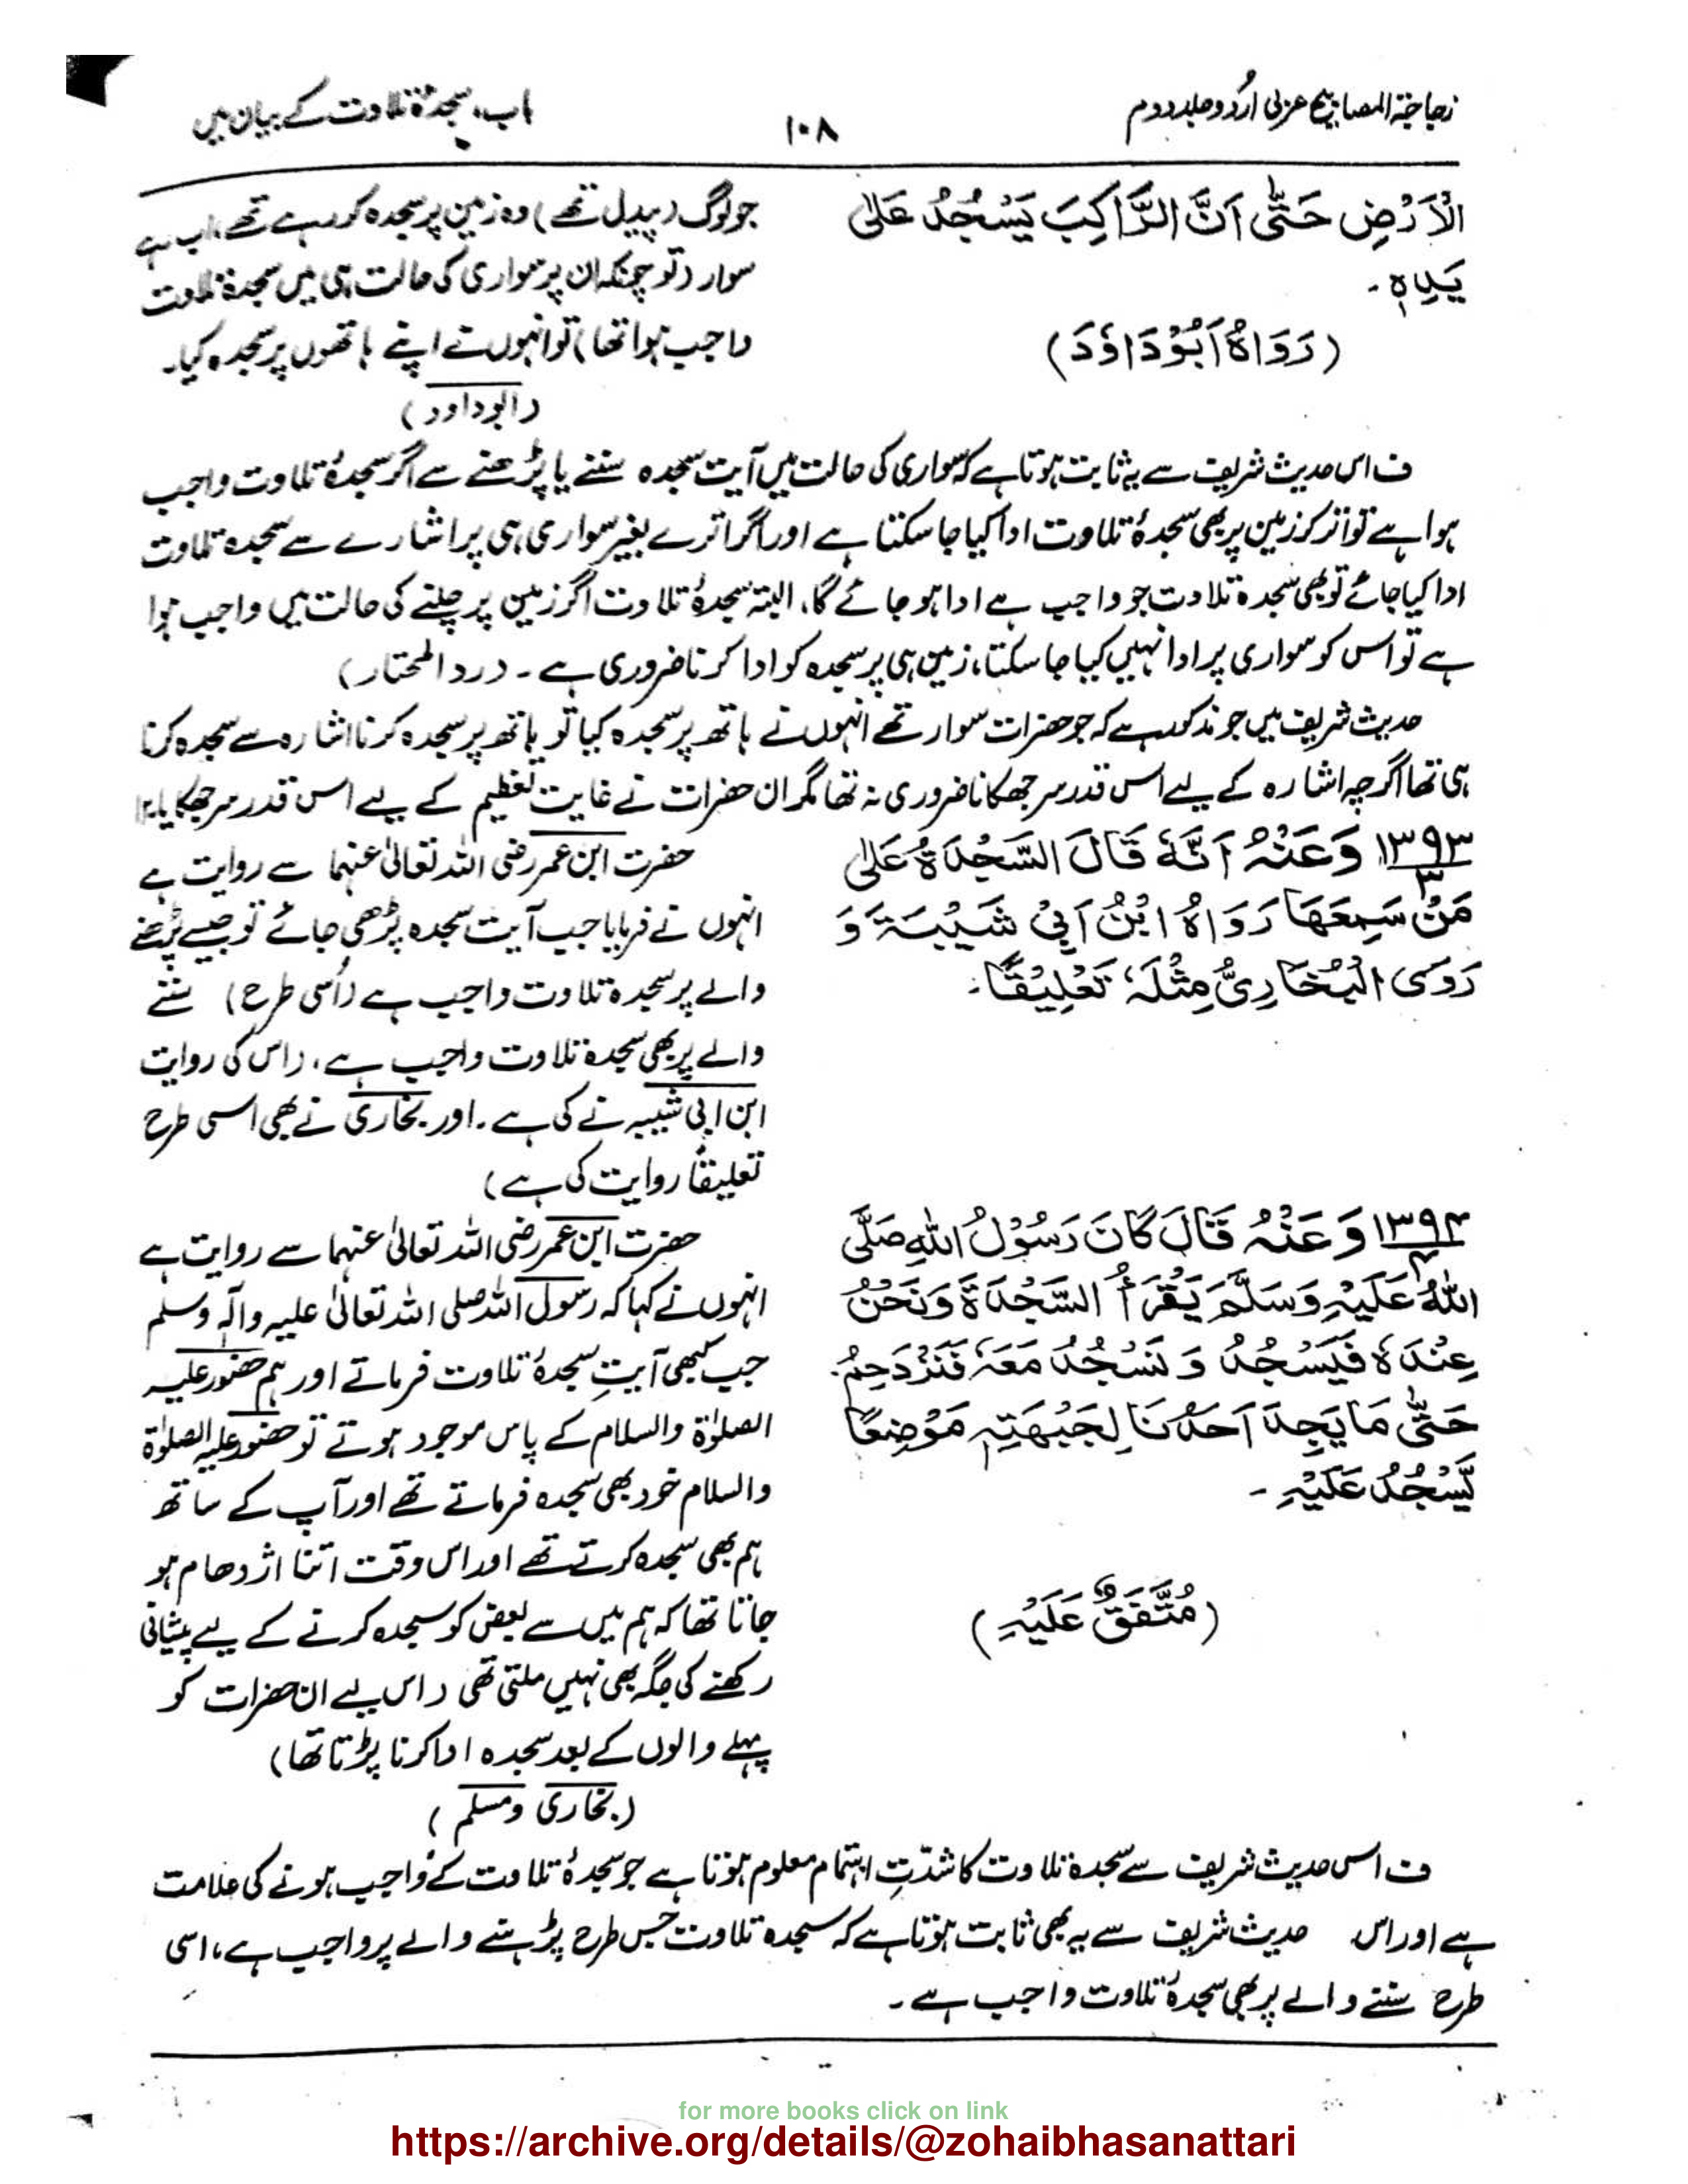 زجاجۃ المصابیح عربی اردو جلد دوم
۱۰۸
باب، سجدۂ تلاوت کے بیان میں
الْاَرْضِ حَتّٰی اَنَّ الرَّاكِبَ يَسْجُدُ عَلٰی
يَدِهٖ۔
(رَوَاهُ اَبُوْدَاوٗدَ)
جو لوگ (پیدل تھے) وہ زمین پر سجدہ کر رہے تھے، اب رہے
سوار (تو چونکہ ان پر سواری کی حالت ہی میں سجدۂ تلاوت
واجب ہوا تھا) تو انہوں نے اپنے ہاتھوں پر سجدہ کیا۔
(ابوداود)
ف اس حدیث شریف سے یہ ثابت ہوتا ہے کہ سواری کی حالت میں آیت سجدہ سننے یا پڑھنے سے اگر سجدۂ تلاوت واجب
ہوا ہے تو اتر کر زمین پر بھی سجدۂ تلاوت ادا کیا جا سکتا ہے اور اگر اترے بغیر سواری ہی پر اشارے سے سجدہ تلاوت
ادا کیا جائے تو بھی سجدہ تلاوت جو واجب ہے ادا ہو جائے گا، البتہ سجدۂ تلاوت اگر زمین پر چلنے کی حالت میں واجب ہوا
ہے تو اس کو سواری پر ادا نہیں کیا جا سکتا، زمین ہی پر سجدہ کو ادا کرنا ضروری ہے۔ (رد المحتار)
حدیث شریف میں جو مذکور ہے کہ جو حضرات سوار تھے انہوں نے ہاتھ پر سجدہ کیا تو ہاتھ پر سجدہ کرنا اشارہ سے سجدہ کرنا
ہی تھا اگرچہ اشارہ کے لیے اس قدر سر جھکانا ضروری نہ تھا مگر ان حضرات نے غایت تعظیم کے لیے اس قدر سر جھکایا۔ ۱۲
۱۳۹۳/۳ وَعَنْهُ اَنَّهٗ قَالَ السَّجْدَةُ عَلٰی
مَنْ سَمِعَهَا رَوَاهُ ابْنُ اَبِيْ شَيْبَةَ وَ
رَوَى الْبُخَارِيُّ مِثْلَهٗ تَعْلِيْقًا۔
حضرت ابن عمر رضی اللہ تعالیٰ عنہما سے روایت ہے
انہوں نے فرمایا جب آیت سجدہ پڑھی جائے تو جیسے پڑھنے
والے پر سجدہ تلاوت واجب ہے (اُسی طرح) سننے
والے پر بھی سجدہ تلاوت واجب ہے، (اس کی روایت
ابن ابی شیبہ نے کی ہے۔ اور بخاری نے بھی اسی طرح
تعلیقاً روایت کی ہے)
۱۳۹۴/۴ وَعَنْهُ قَالَ كَانَ رَسُوْلُ اللّٰهِ صَلَّی
اللّٰهُ عَلَيْهِ وَسَلَّمَ يَقْرَأُ السَّجْدَةَ وَنَحْنُ
عِنْدَهٗ فَيَسْجُدُ وَنَسْجُدُ مَعَهٗ فَنَزْدَحِمُ
حَتّٰی مَا يَجِدَ اَحَدُنَا لِجَبْهَتِهٖ مَوْضِعًا
يَّسْجُدُ عَلَيْهِ۔
(مُتَّفَقٌ عَلَيْهِ)
حضرت ابن عمر رضی اللہ تعالیٰ عنہما سے روایت ہے
انہوں نے کہا کہ رسول اللہ صلی اللہ تعالیٰ علیہ وآلہ وسلم
جب کبھی آیتِ سجدۂ تلاوت فرماتے اور ہم حضور علیہ
الصلوٰۃ والسلام کے پاس موجود ہوتے تو حضور علیہ الصلوٰۃ
والسلام خود بھی سجدہ فرماتے تھے اور آپ کے ساتھ
ہم بھی سجدہ کرتے تھے اور اس وقت اتنا اژدھام ہو
جاتا تھا کہ ہم میں سے بعض کو سجدہ کرنے کے لیے پیشانی
رکھنے کی جگہ بھی نہیں ملتی تھی (اس لیے ان حضرات کو
پہلے والوں کے بعد سجدہ ادا کرنا پڑتا تھا)
(بخاری ومسلم)
ف اس حدیث شریف سے سجدہ تلاوت کا شدّتِ اہتمام معلوم ہوتا ہے جو سجدۂ تلاوت کے واجب ہونے کی علامت
ہے اور اس حدیث شریف سے یہ بھی ثابت ہوتا ہے کہ سجدہ تلاوت جس طرح پڑھنے والے پر واجب ہے، اسی
طرح سننے والے پر بھی سجدۂ تلاوت واجب ہے۔
for more books click on link
https://archive.org/details/@zohaibhasanattari